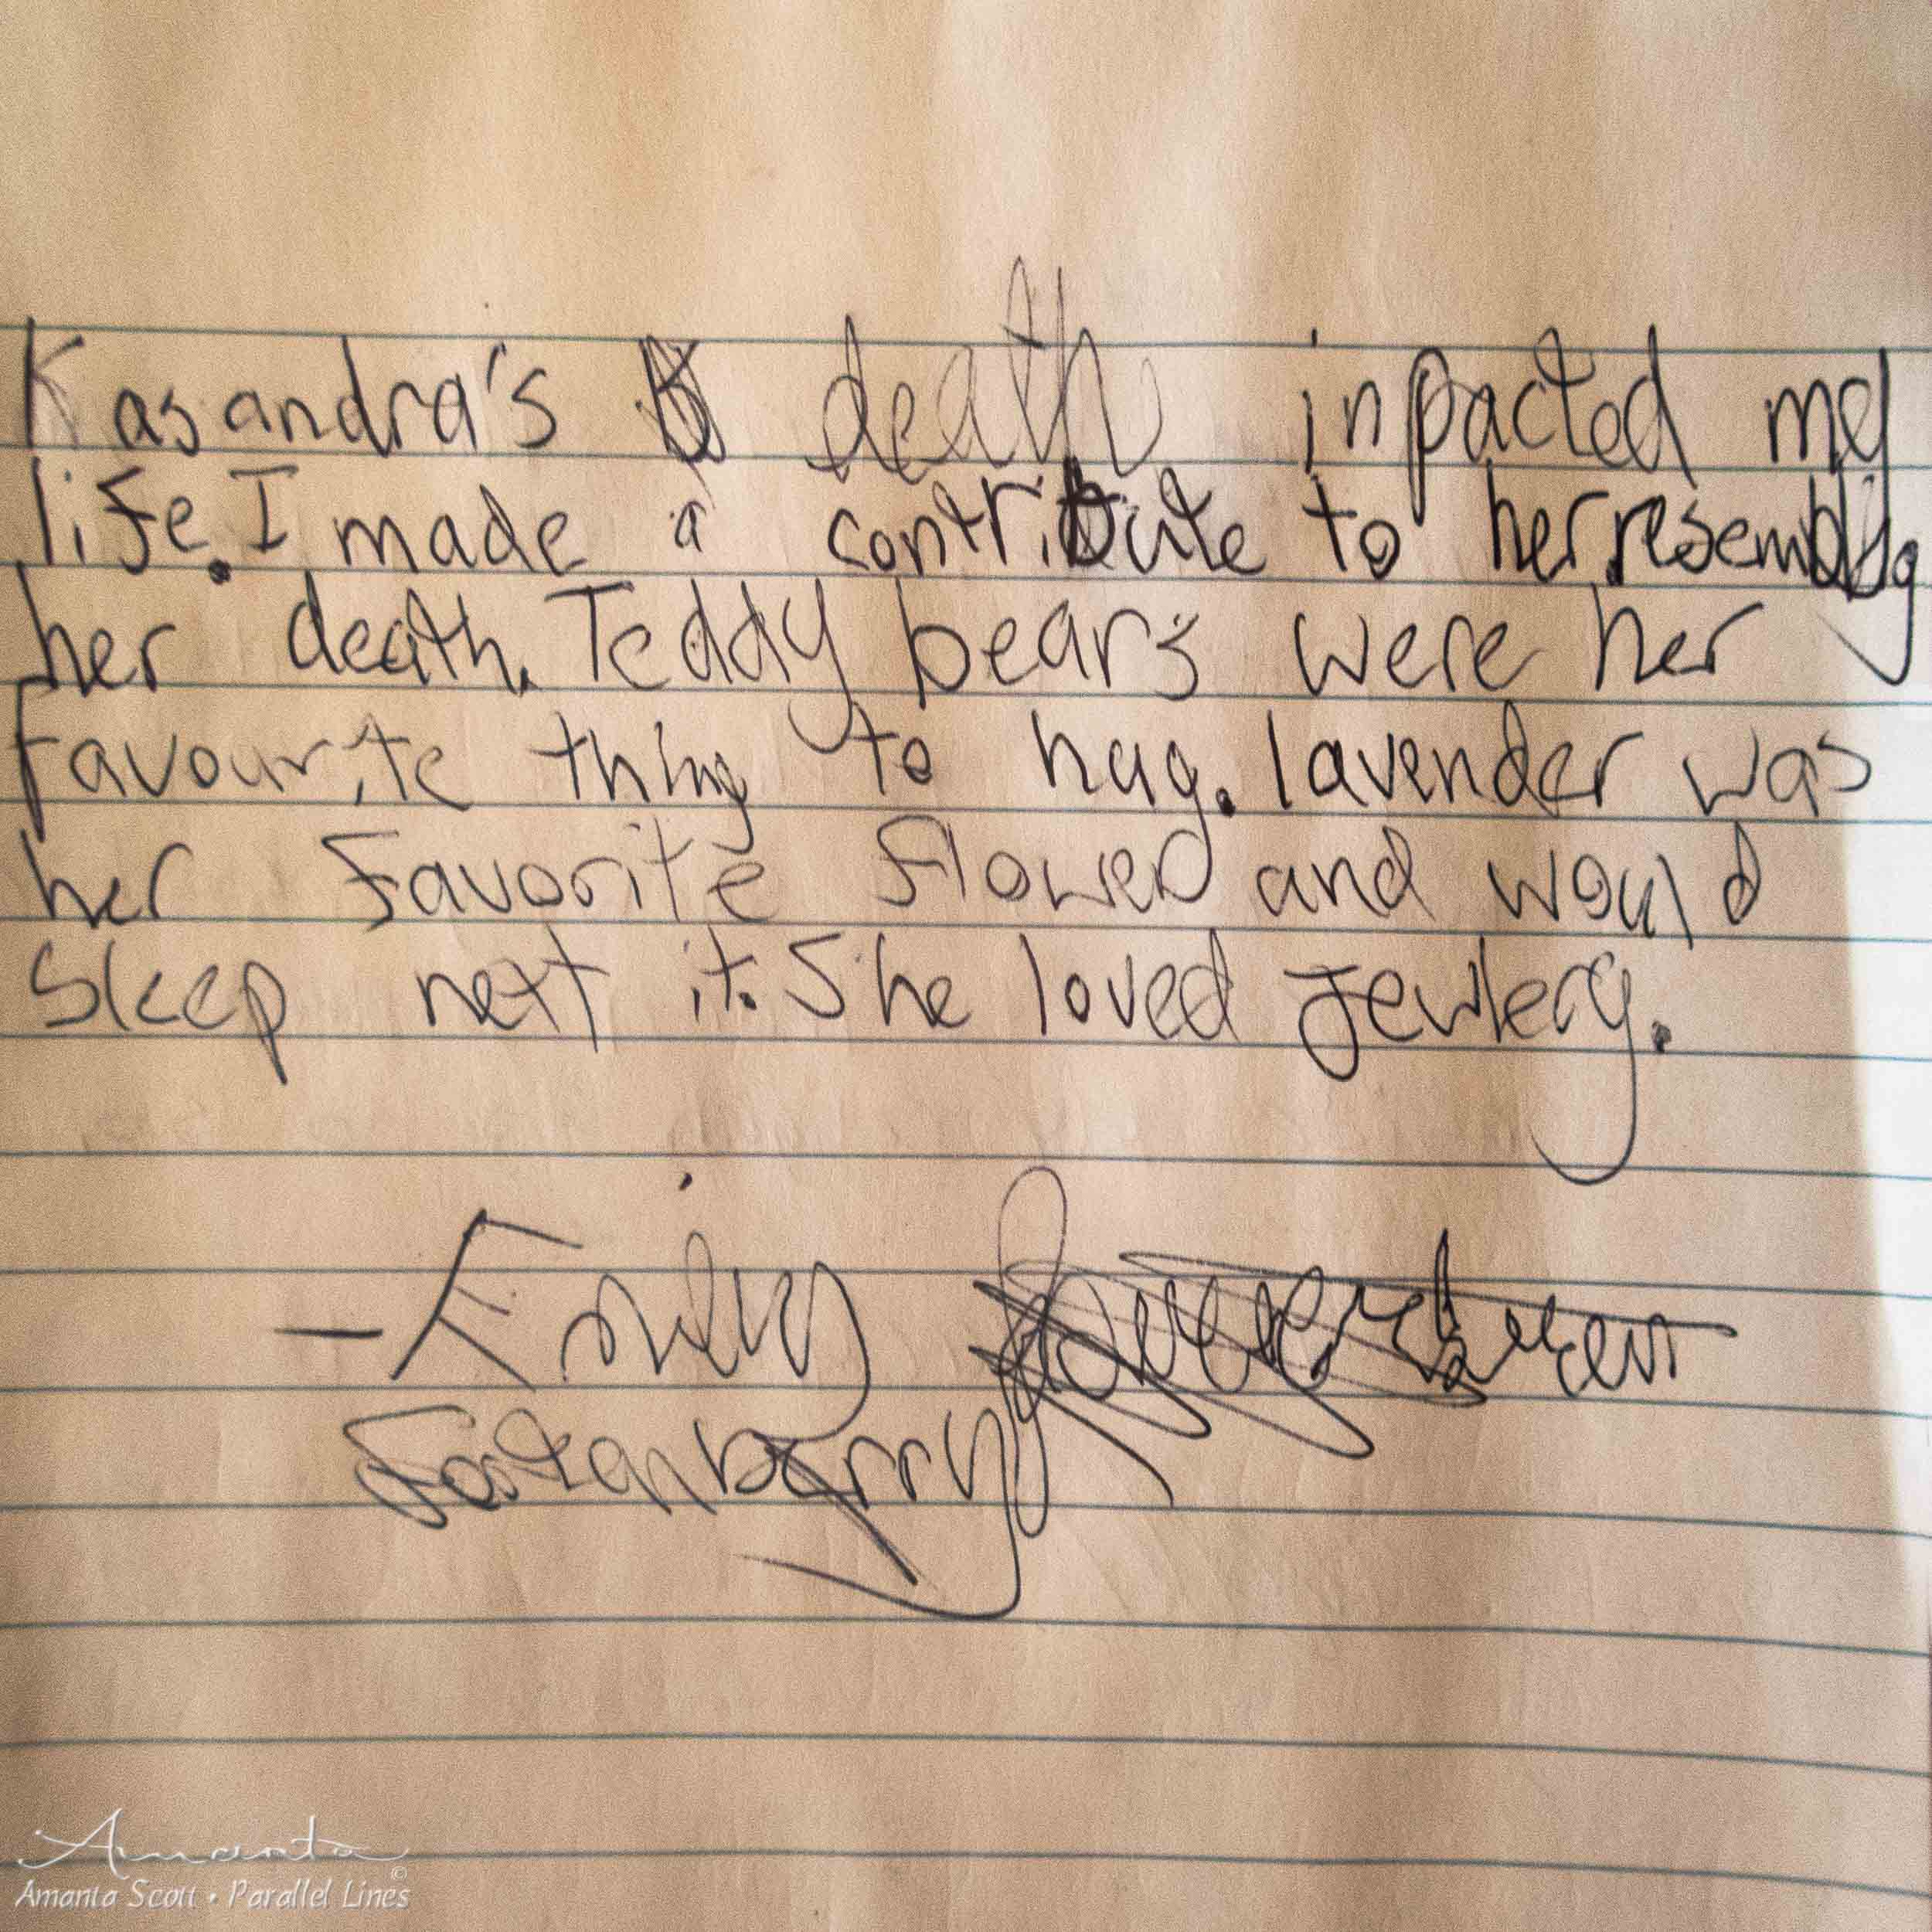 Kasandra's death inpacted my
life. I made a contribute to her resembly
her death. Teddy bears were her
favourite thing to hug. lavender was
her favorite flower and would
sleep next it. She loved jewlery.
- Emily
Fastenberry
Amanta
©
Amanta Scott • Parallel Lines